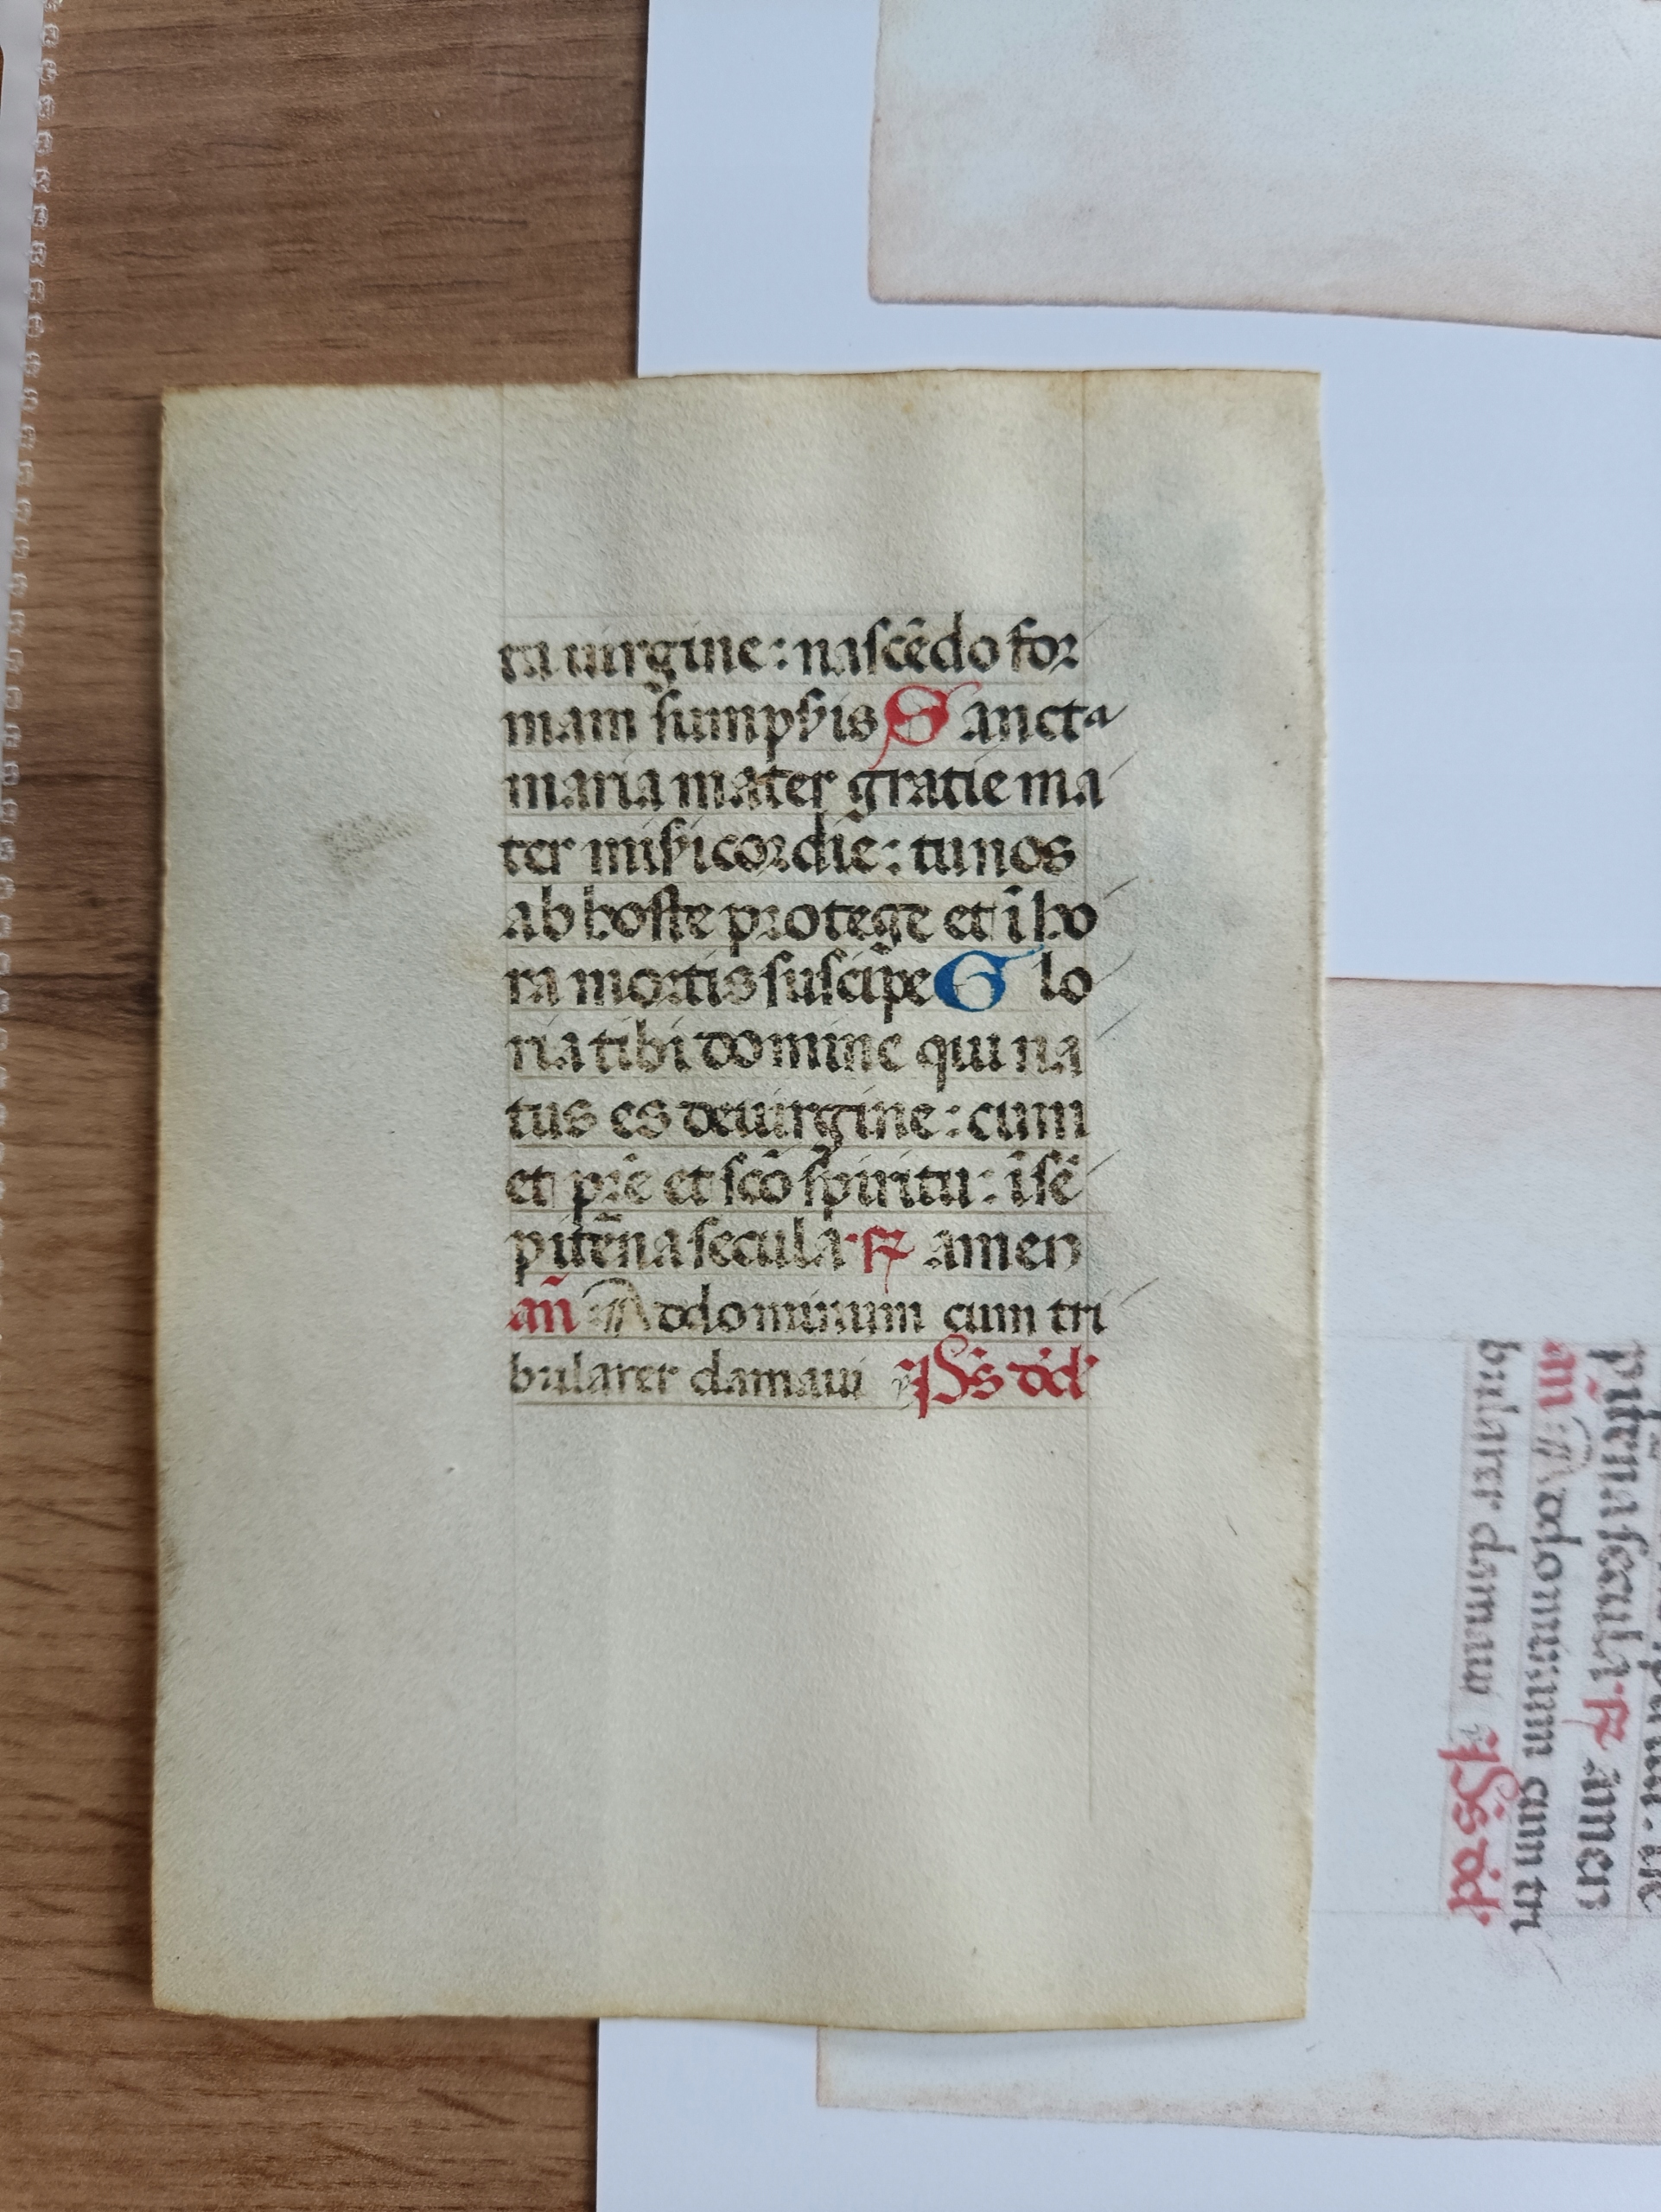 ta uirgine: nascẽdo for
mam sumpsis Sancta
maria mater gratie ma
ter misicordie: tu nos
ab hoste protege et ĩ ho
ra mortis suscipe Glo
ria tibi domine qui na
tus es de uirgine: cum
et pr̃e et scõ spiritu: ĩ sẽ
pitẽna secula. R amen
añ Ad dominum cum tri
bularer clamaui Ps dd
pitẽna secula. R amen
añ Ad dominum cum tri
bularer clamaui Ps dd